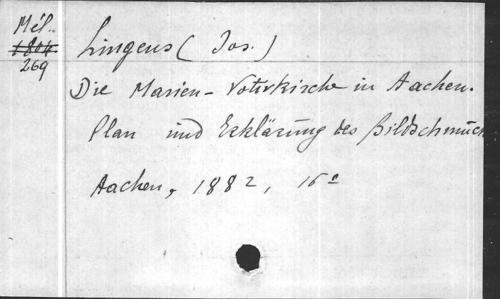 Mél.
1804
269
Lingens (Jos.)
Die Marien-Votivkirche in Aachen.
Plan und Erklärung des Bildschmuck
Aachen, 1882, 16°